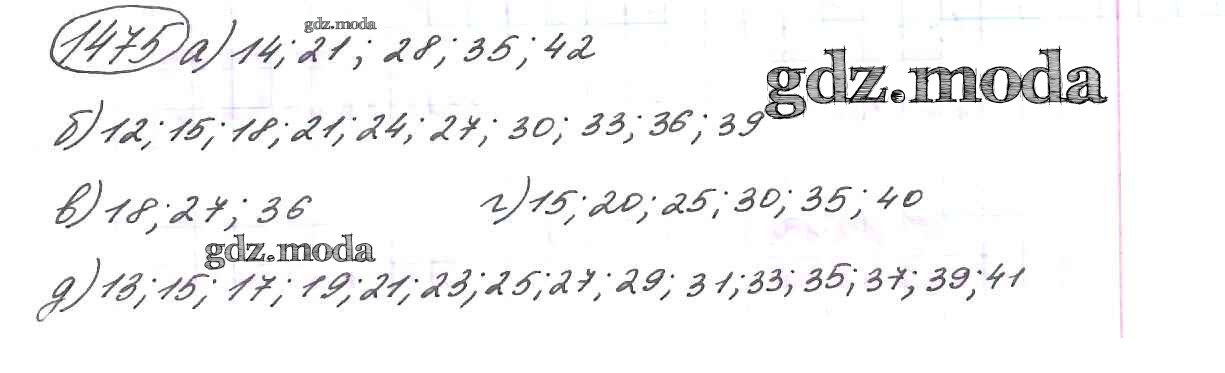 gdz.moda
1475 а) 14; 21; 28; 35; 42
gdz.moda
б) 12; 15; 18; 21; 24; 27; 30; 33; 36; 39
в) 18; 27; 36 г) 15; 20; 25; 30; 35; 40
gdz.moda
д) 13; 15; 17; 19; 21; 23; 25; 27; 29; 31; 33; 35; 37; 39; 41